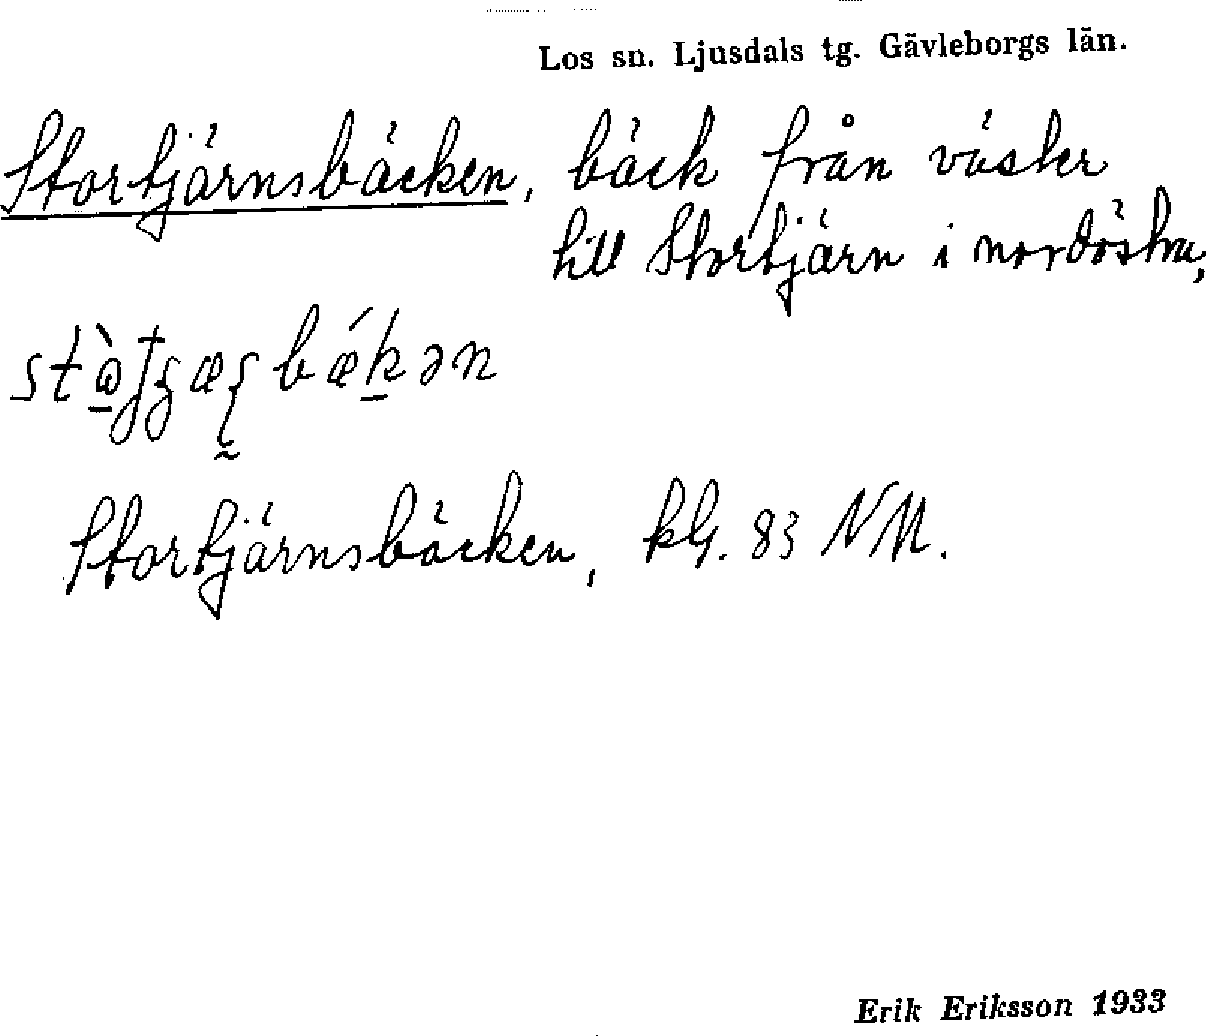 Los sn. Ljusdals tg. Gävleborgs län.
Stortjärnsbäcken, bäck från väster
till Stortjärn i nordöstra,
Stortjärnsbäcken, kbl. 83 NM.
Erik Eriksson 1933